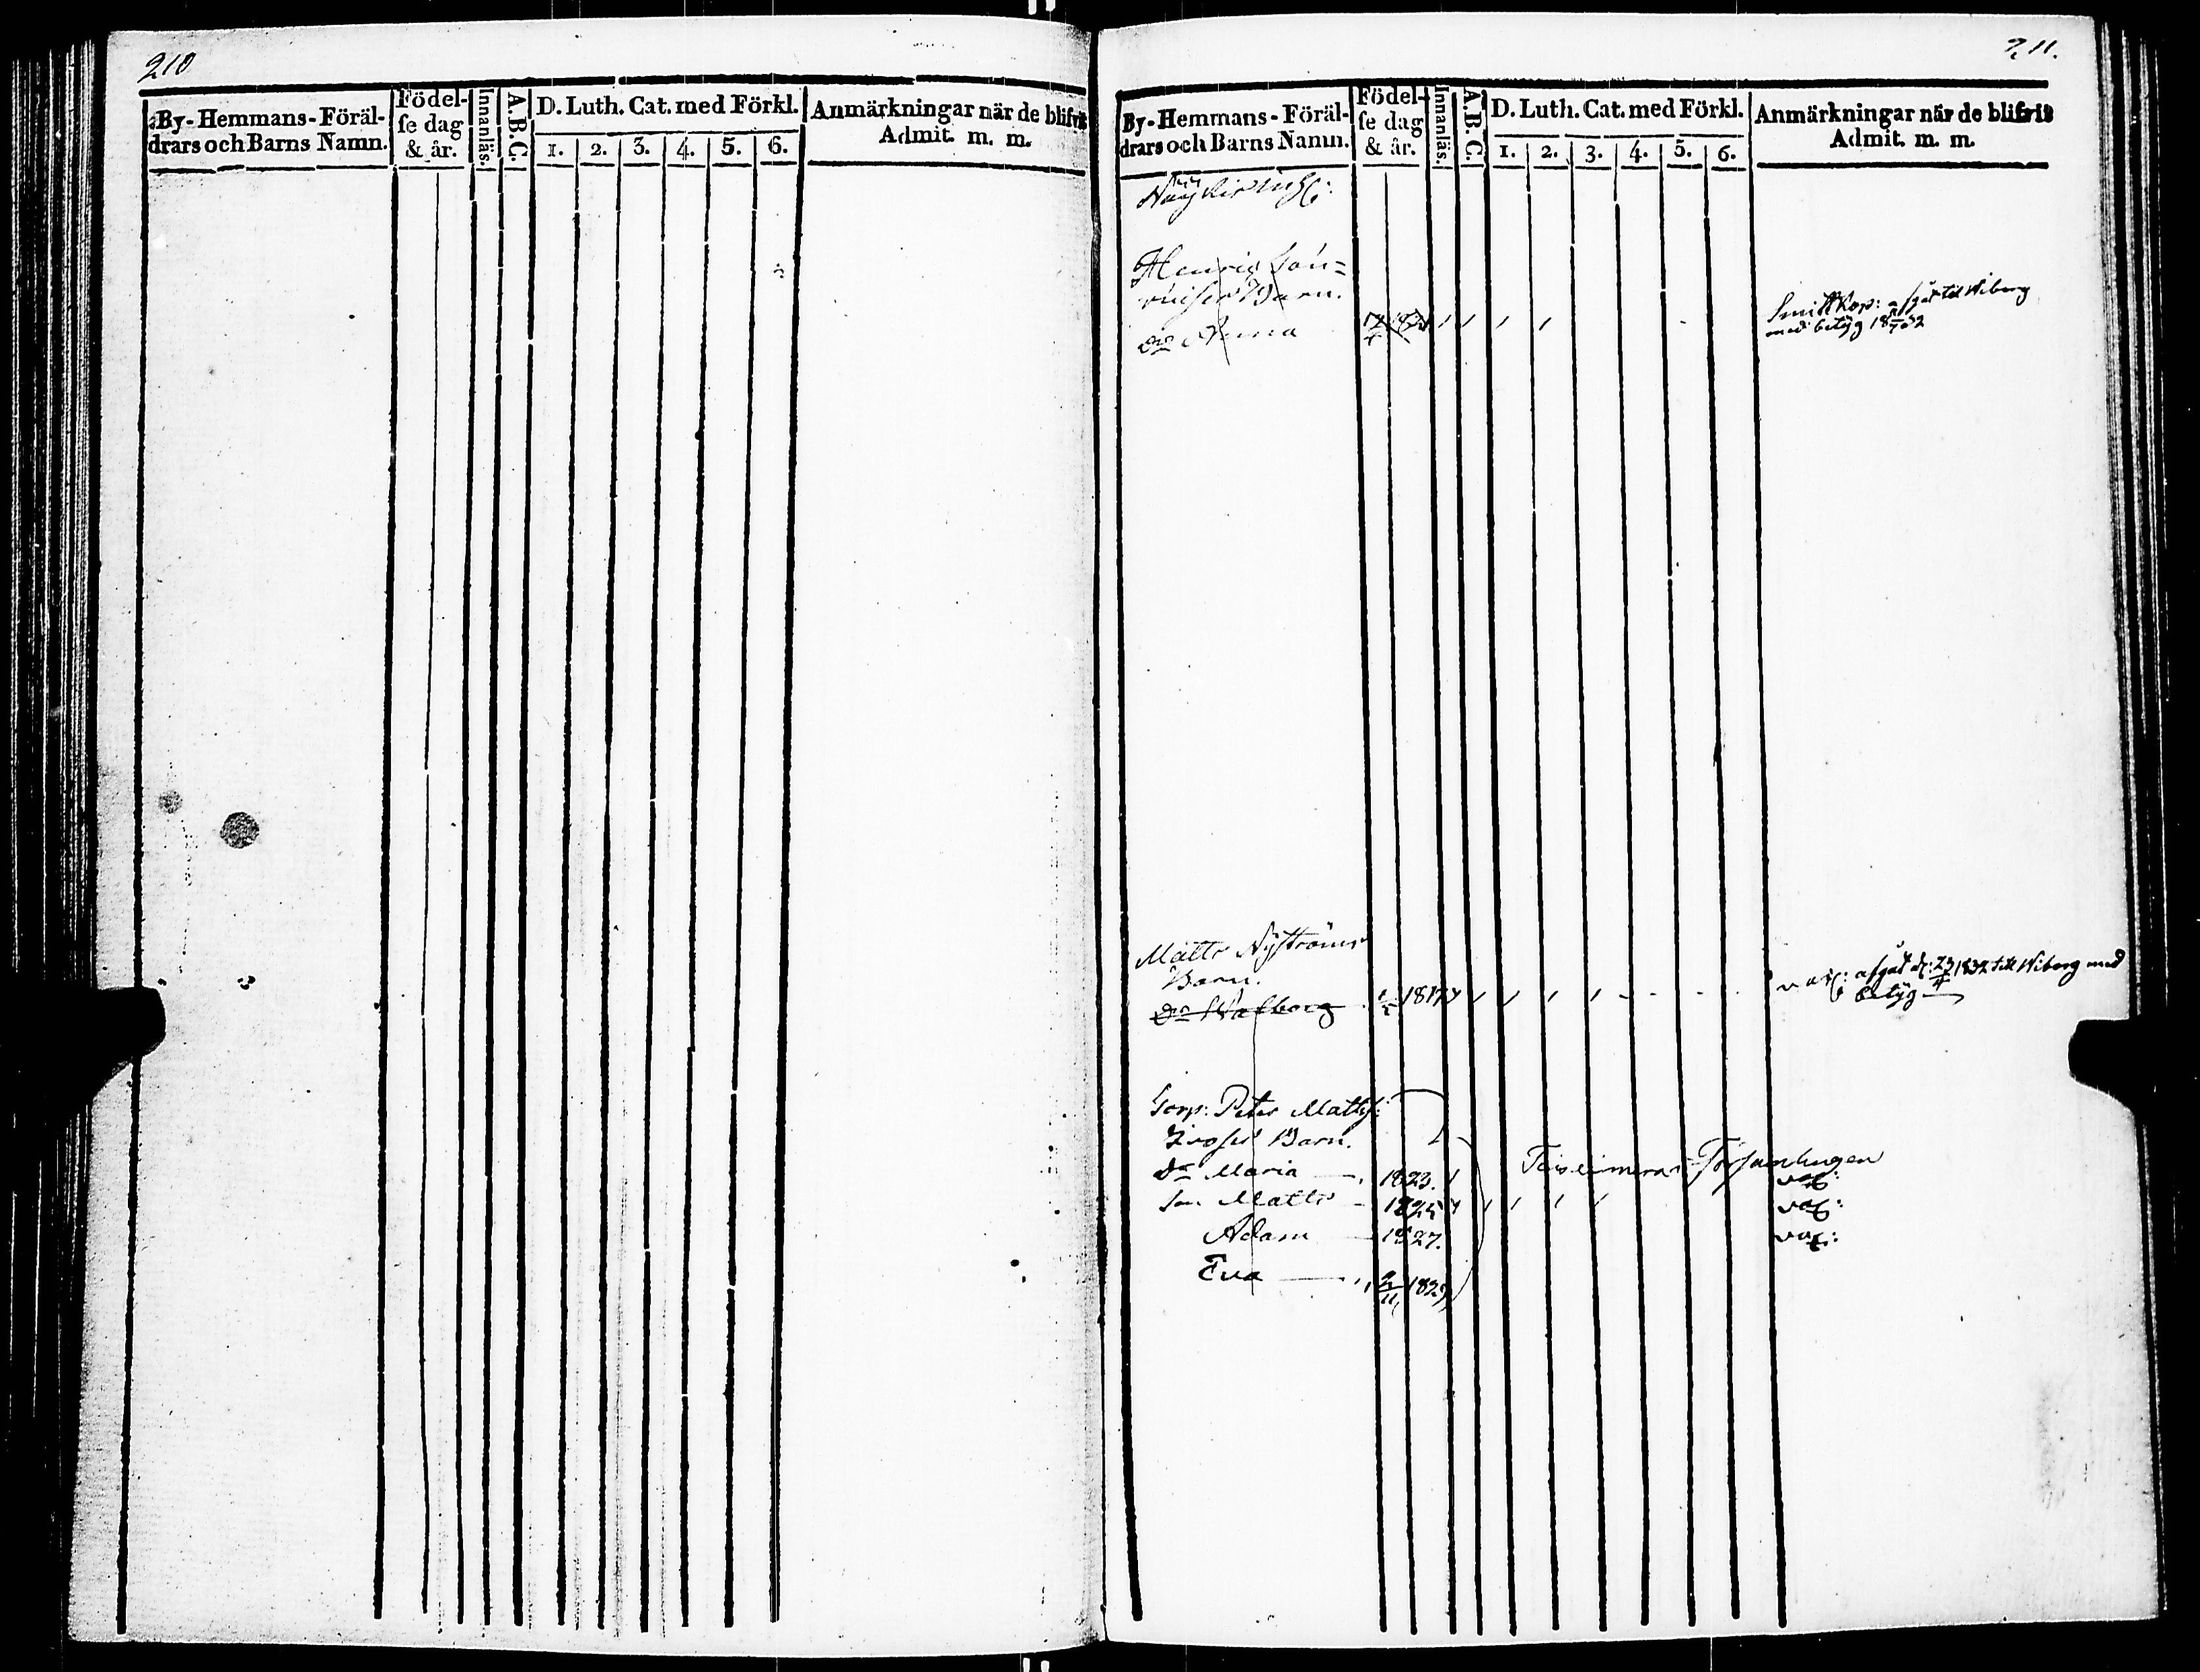 210
By-Hemmans-Föräl-
drars och Barns Namn.
Födel-
se dag
& år.
Innanläs.
A.B.C.
D. Luth. Cat. med Förkl.
1. 2. 3. 4. 5. 6.
Anmärkningar när de blifvit
Admit. m. m.
211.
By-Hemmans-Föräl-
drars och Barns Namn.
Födel-
se dag
& år.
Innanläs.
A.B.C.
D. Luth. Cat. med Förkl.
1. 2. 3. 4. 5. 6.
Anmärkningar när de blifvit
Admit. m. m.
Henric
Barn.
Dr Anna
till Wiborg
med betyg
Matts Nyströms
Barn.
Dr Walborg 1817
vac: afgåt d: 23/4 1832 till Wiborg med
betyg
Torp: Peter Matts:
Barn.
Dr Maria 1823.
Församlingen
vac:
Son Matts 1825
vac:
Adam 1827.
vac:
Eva 2/11 1829